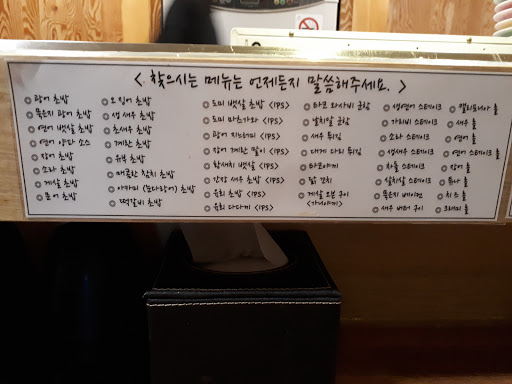 < 찾으시는 메뉴는 언제든지 말씀해주세요. >
광어 초밥
묵은지 광어 초밥
연어 뱃살 초밥
연어 양파 소스
장어 초밥
소라 초밥
게살 초밥
문어 초밥
오징어 초밥
생새우 초밥
초새우 초밥
계란 초밥
유부 초밥
매콤한 참치 초밥
아카미 (눈다랑어) 초밥
떡갈비 초밥
도미 뱃살 초밥 <1PS>
도미 마츠가와 <1PS>
광어 지느러미 <1PS>
장어 계란 말이 <1PS>
참새치 뱃살 <1PS>
간장 새우 초밥 <1PS>
육회 초밥 <1PS>
육회 다다끼 <1PS>
타코 와사비 군함
날치알 군함
새우 튀김
대게 다리 튀김
타코야끼
닭 꼬치
게살 오븐 구이
<가니야끼>
생연어 스테이크
가리비 스테이크
소라 스테이크
생새우 스테이크
차돌 스테이크
살치살 스테이크
묵은지 베이컨
새우 버터 구이
캘리포니아 롤
새우 롤
연어 롤
연어 스테이크 롤
장어 롤
튜나 롤
치즈 롤
크래미 롤